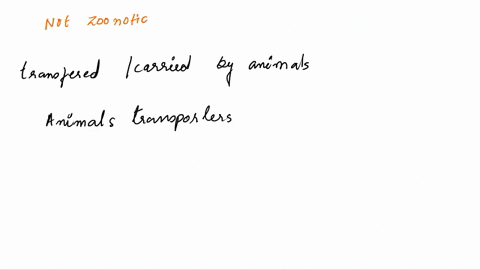 Not zoonotic
transfered /carried by animals
Animals transporters